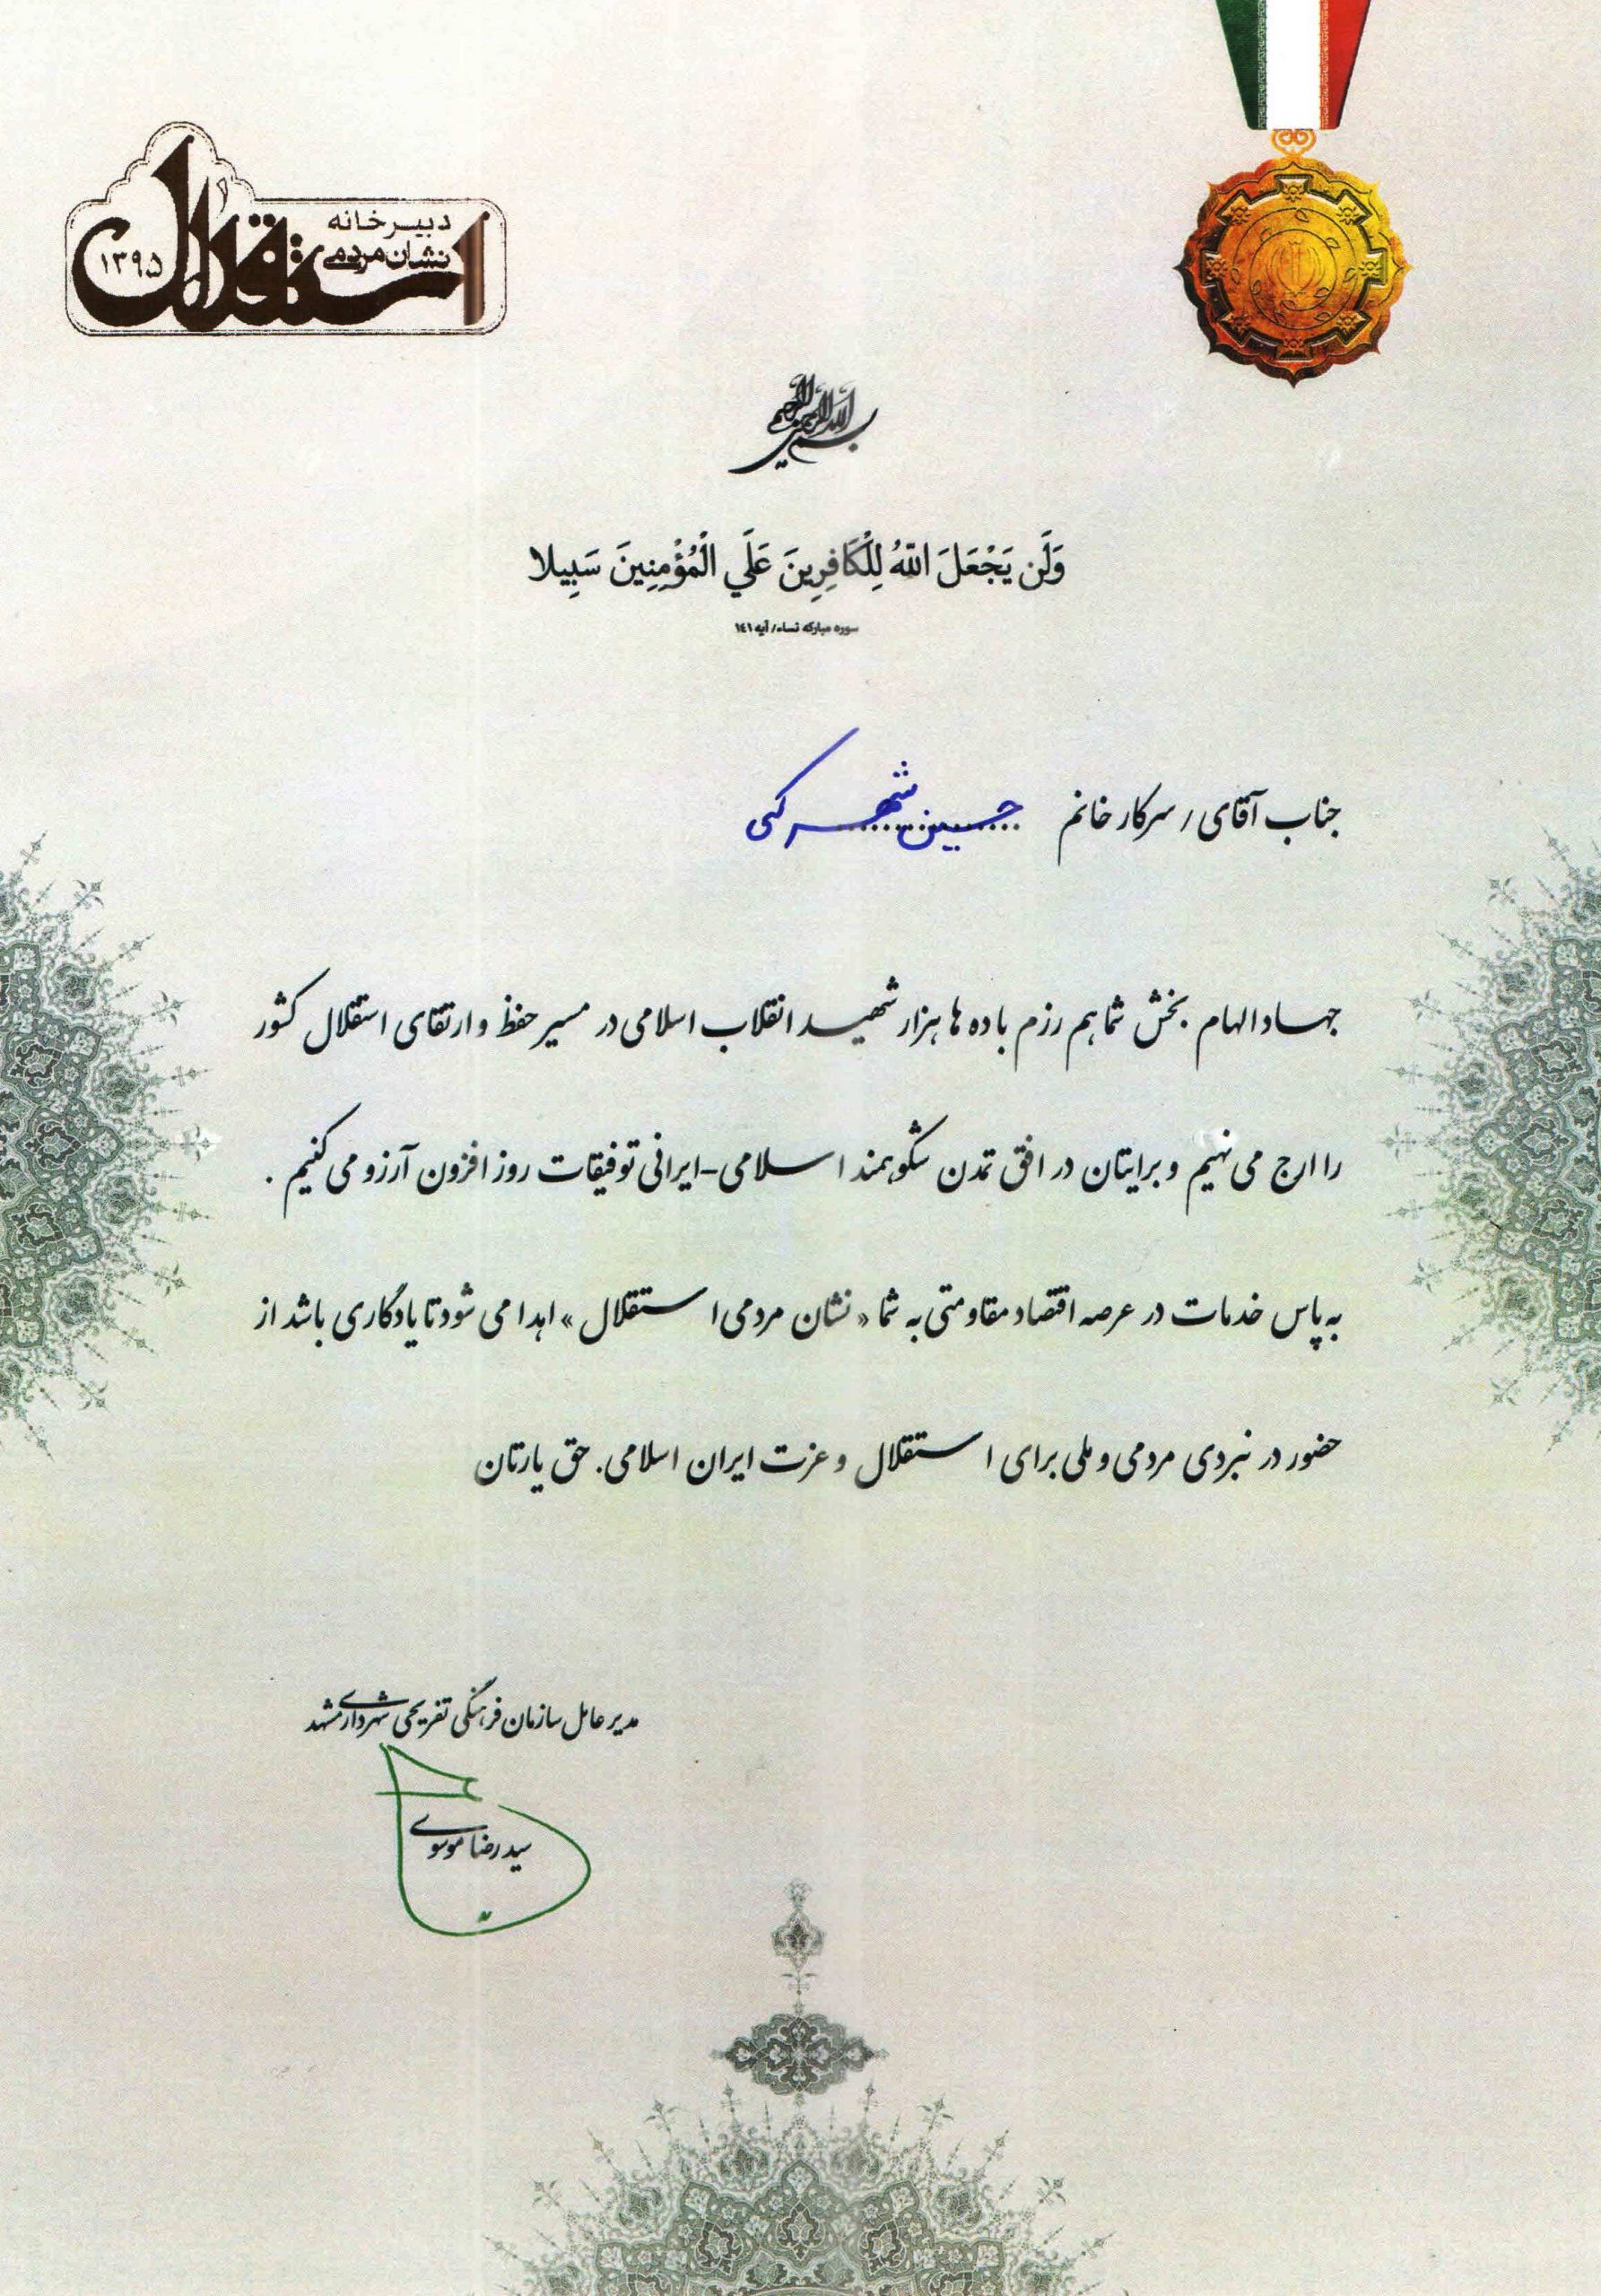 دبیرخانه
نشان مردمی
استقلال
۱۳۹۵
بسم الله الرحمن الرحیم
وَلَن يَجْعَلَ اللّهُ لِلْكَافِرِينَ عَلَي الْمُؤْمِنِينَ سَبِيلا
سوره مبارکه نساء/ آیه ۱٤۱
جناب آقای / سرکار خانم حسین شهرکی
جهاد الهام بخش شما هم رزم با ده ها هزار شهید انقلاب اسلامی در مسیر حفظ و ارتقای استقلال کشور
را ارج می نهیم و برایتان در افق تمدن شکوهمند اسلامی-ایرانی توفیقات روز افزون آرزو می کنیم .
به پاس خدمات در عرصه اقتصاد مقاومتی به شما «نشان مردمی استقلال» اهدا می شود تا یادگاری باشد از
حضور در نبردی مردمی و ملی برای استقلال و عزت ایران اسلامی. حق یارتان
مدیر عامل سازمان فرهنگی تفریحی شهرداری مشهد
سید رضا موسوی